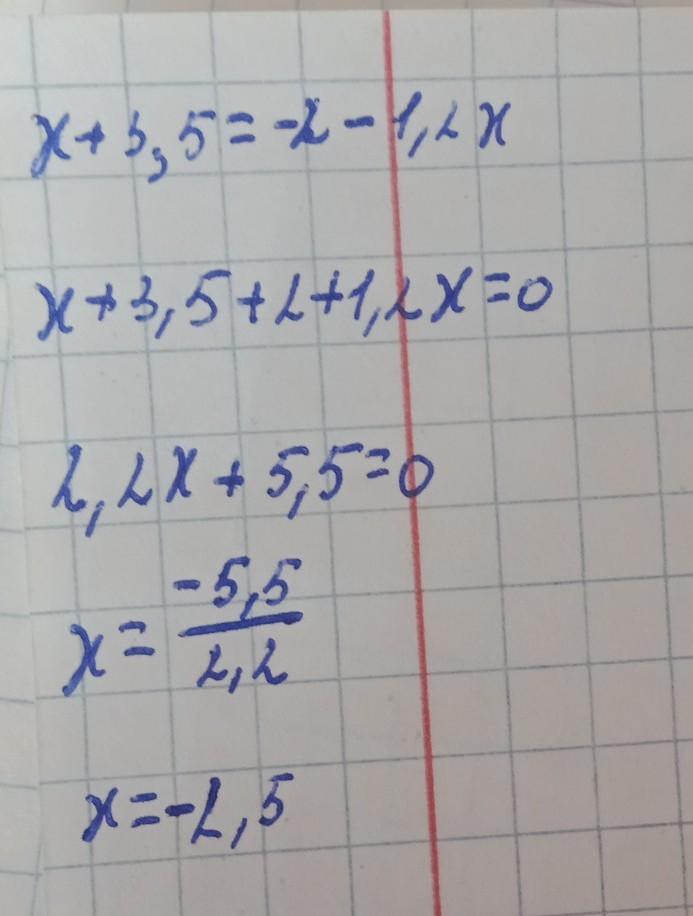 x+3,5=-2-1,2x
x+3,5+2+1,2x=0
2,2x+5,5=0
x=-5,5/2,2
x=-2,5